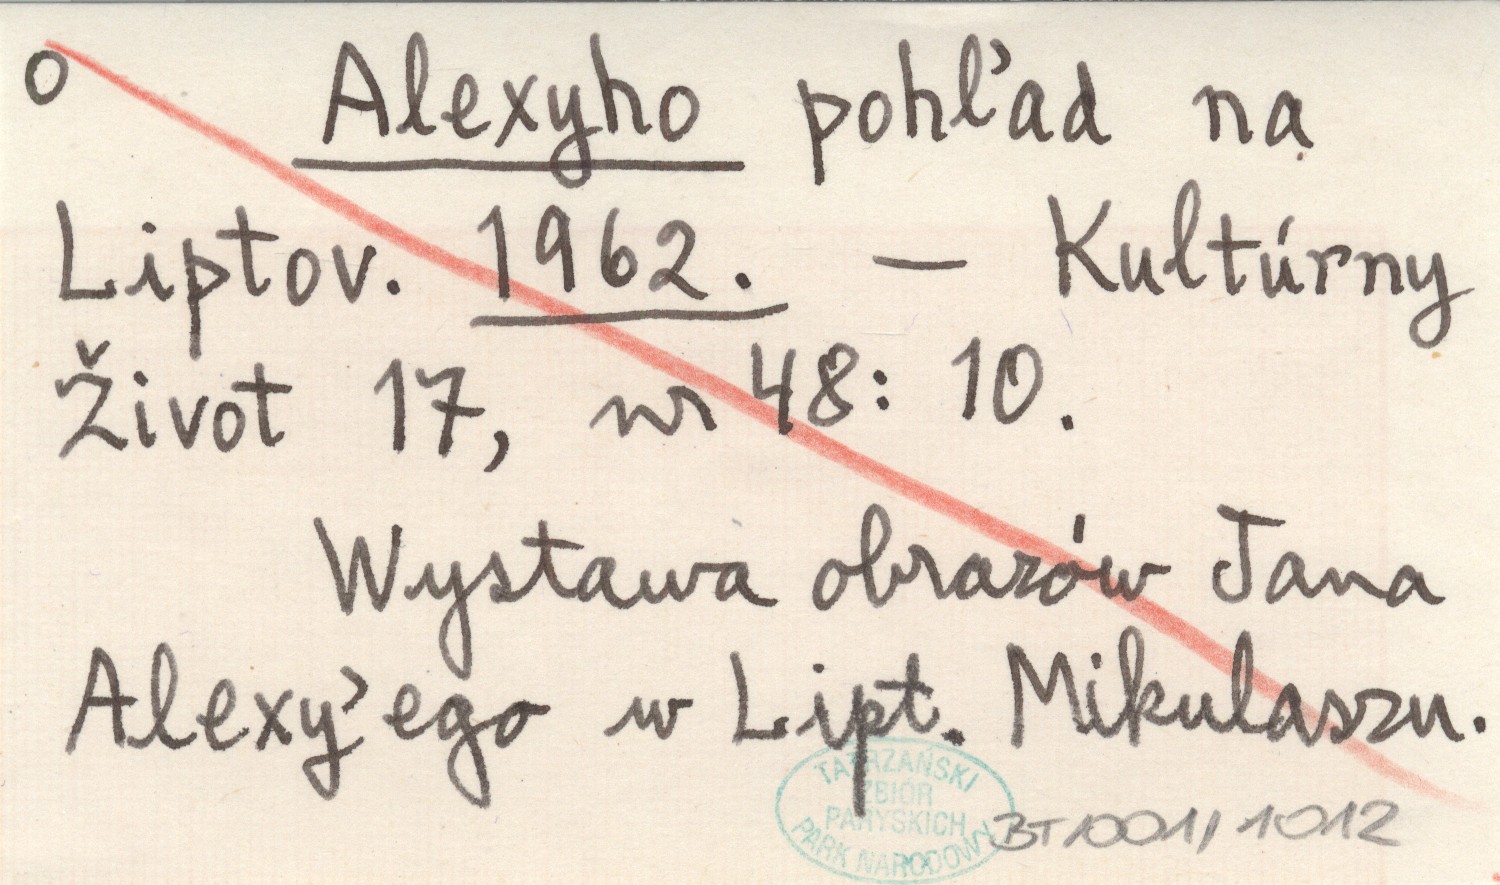 o Alexyho pohľad na
Liptov. 1962. — Kultúrny
Život 17, nr 48: 10.
Wystawa obrazów Jana
Alexy'ego w Lipt. Mikulaszu.
TATRZAŃSKI
ZBIÓR
PARYSKICH
PARK NARODOWY
BT1001/1012